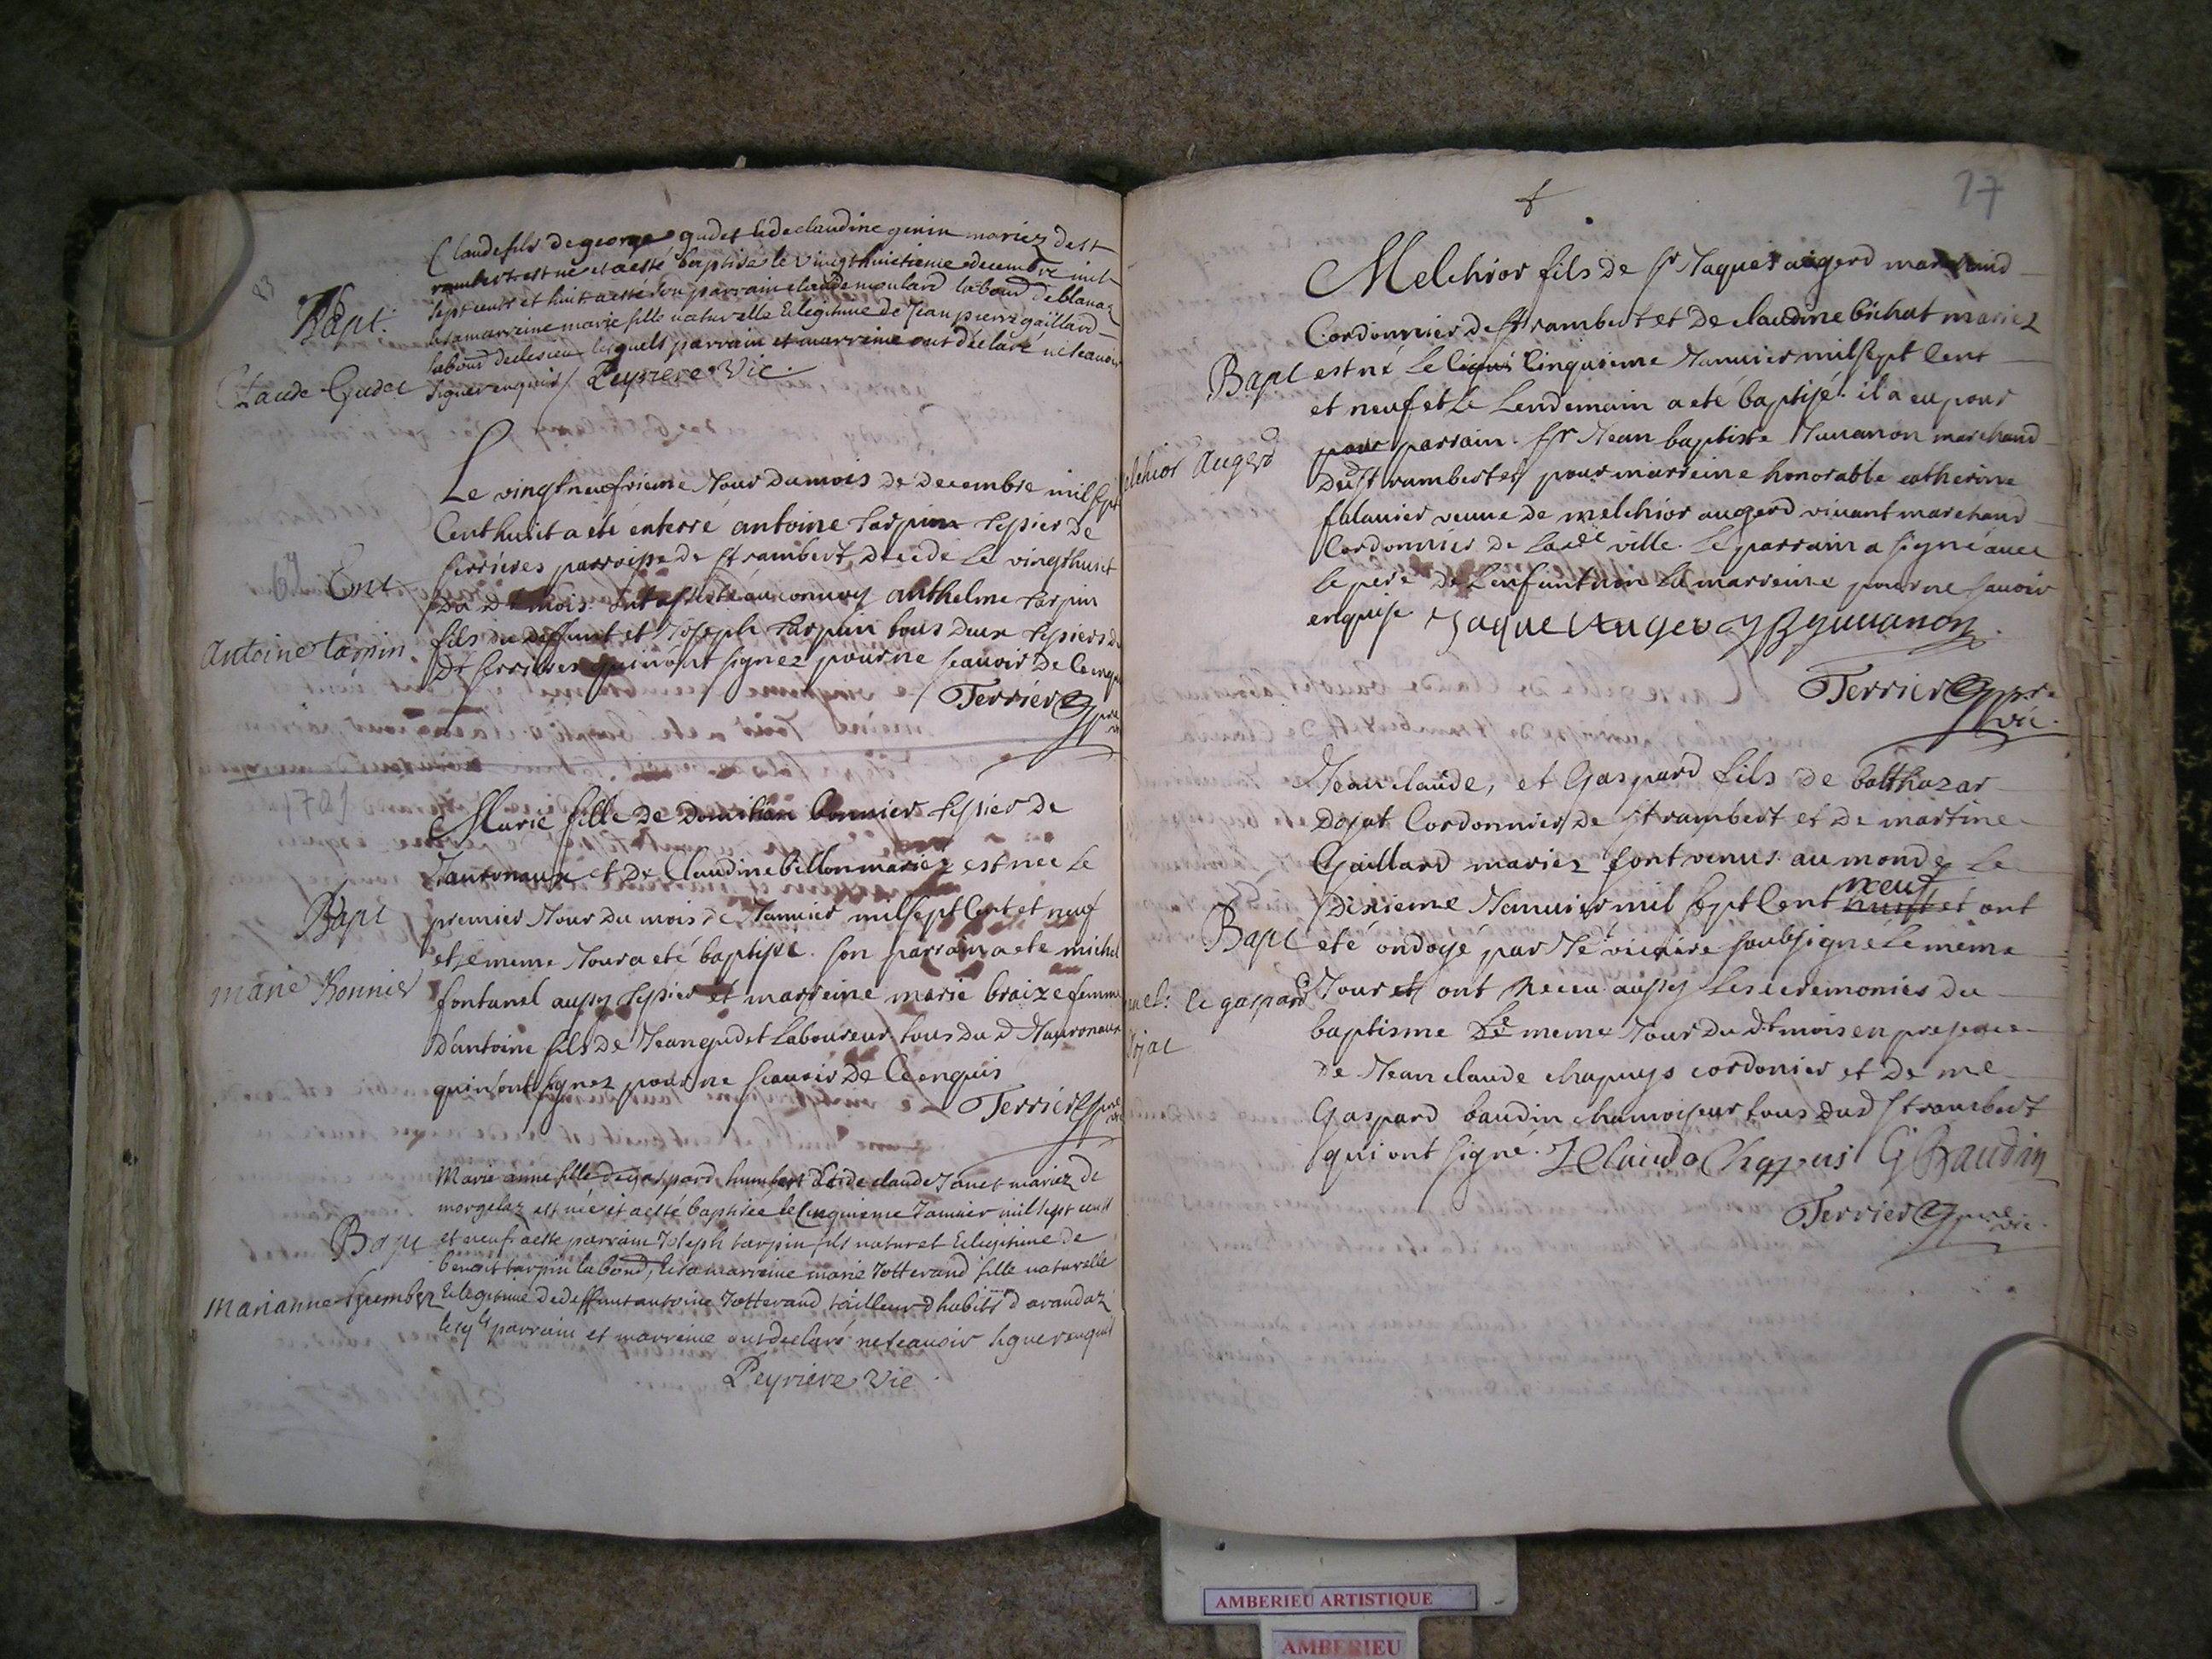 83
Claude fils de george gudet & de claudine genin mariez de st
rambert est né et a esté baptisé le vingt huitieme decembre mil
Bapt.
sept cents et huit a esté son parrain claude moulard labour de blanaz
et sa marreine marie fille naturelle & legitime de Jean pierre gaillard
labour lesquels parrain et marreine ont déclaré ne scauoir
Claude Gudet
signer enquis / Peyriere Vic.
Le vingt neufvieme Jour du mois de decembre mil sept
Cent huit a eté enterré antoine tarpin tepier de
Ent
serrieres parroisse de st rambert, decede le vingt huit
du dt mois. ont assisté au convoy anthelme tarpin
antoine tarpin
fils du deffunt et Joseph tarpin tous deux tepiers du
dt serrieres qui n'ont signez pour ne scauoir de ce enquis
Terrier pre
vic
Marie fille de Domitian bonnier tepier de
et de Claudine billon mariez est née le
Bapt
premier Jour du mois de Januier mil sept Cent et neuf
et le meme Jour a eté baptisée. son parrain a ete michel
marie Bonnier
fontanel aussy tepier et marreine marie braize femme
d'antoine fils de Jean gudet Laboureur tous du d
qui n'ont signez pour ne scauoir de Ce enquis
Terrier pre
vic
Marie anne fille de gaspard humbert & de claude Janet mariez de
morgelaz est née et a esté baptisée le Cinquieme Januier mil sept cents
Bapt
et neuf a esté parrain Joseph tarpin fils naturel & legitime de
benoit tarpin labour, et sa marreine marie Jotterand fille naturelle
Marianne humbert
& legitime de deffunt antoine Jotterand tailleur d'habits d'arandaz
lesqls parrain et marreine ont declaré ne scauoir signer enquis
Peyriere Vic
17
Melchior fils de sr Jaques augerd marchand
Cordonnier de st rambert et de claudine bichat mariez
Bapt
est né Le Cinquieme Januier mil sept Cent
et neuf et Le Lendemain a eté baptisé. il a eu pour
pour parrain. sr Jean baptiste Juuanon marchand
elchior augerd
dudt st rambert et pour marreine honorable catherine
falauier veuue de melchior augerd viuant marchand
Cordonnier de Ladte ville. Le parrain a signé auec
Le pere de L'enfant non La marreine pour ne sauoir
enquise Jaque Auger J B Juuanon
Terrier pre
vic.
Jean claude, et Gaspard fils de balthazar
dojat Cordonnier de st rambert et de martine
Gaillard mariez sont venus au monde Le
neuf
dixieme Januier mil sept Cent huit et ont
Bapt
eté ondoyé par Le vicaire soubsigné Le meme
el: & gaspard
Jour et ont Receu aussy Les ceremonies du
ojat
baptisme Le meme Jour du dt mois en presence
de Jean claude chapuys cordonier et de me
Gaspard baudin chamoiseur tous dud st rambert
qui ont signé. J Claude Chapuis G Baudin
Terrier pre
vic.
AMBERIEU ARTISTIQUE
AMBERIEU